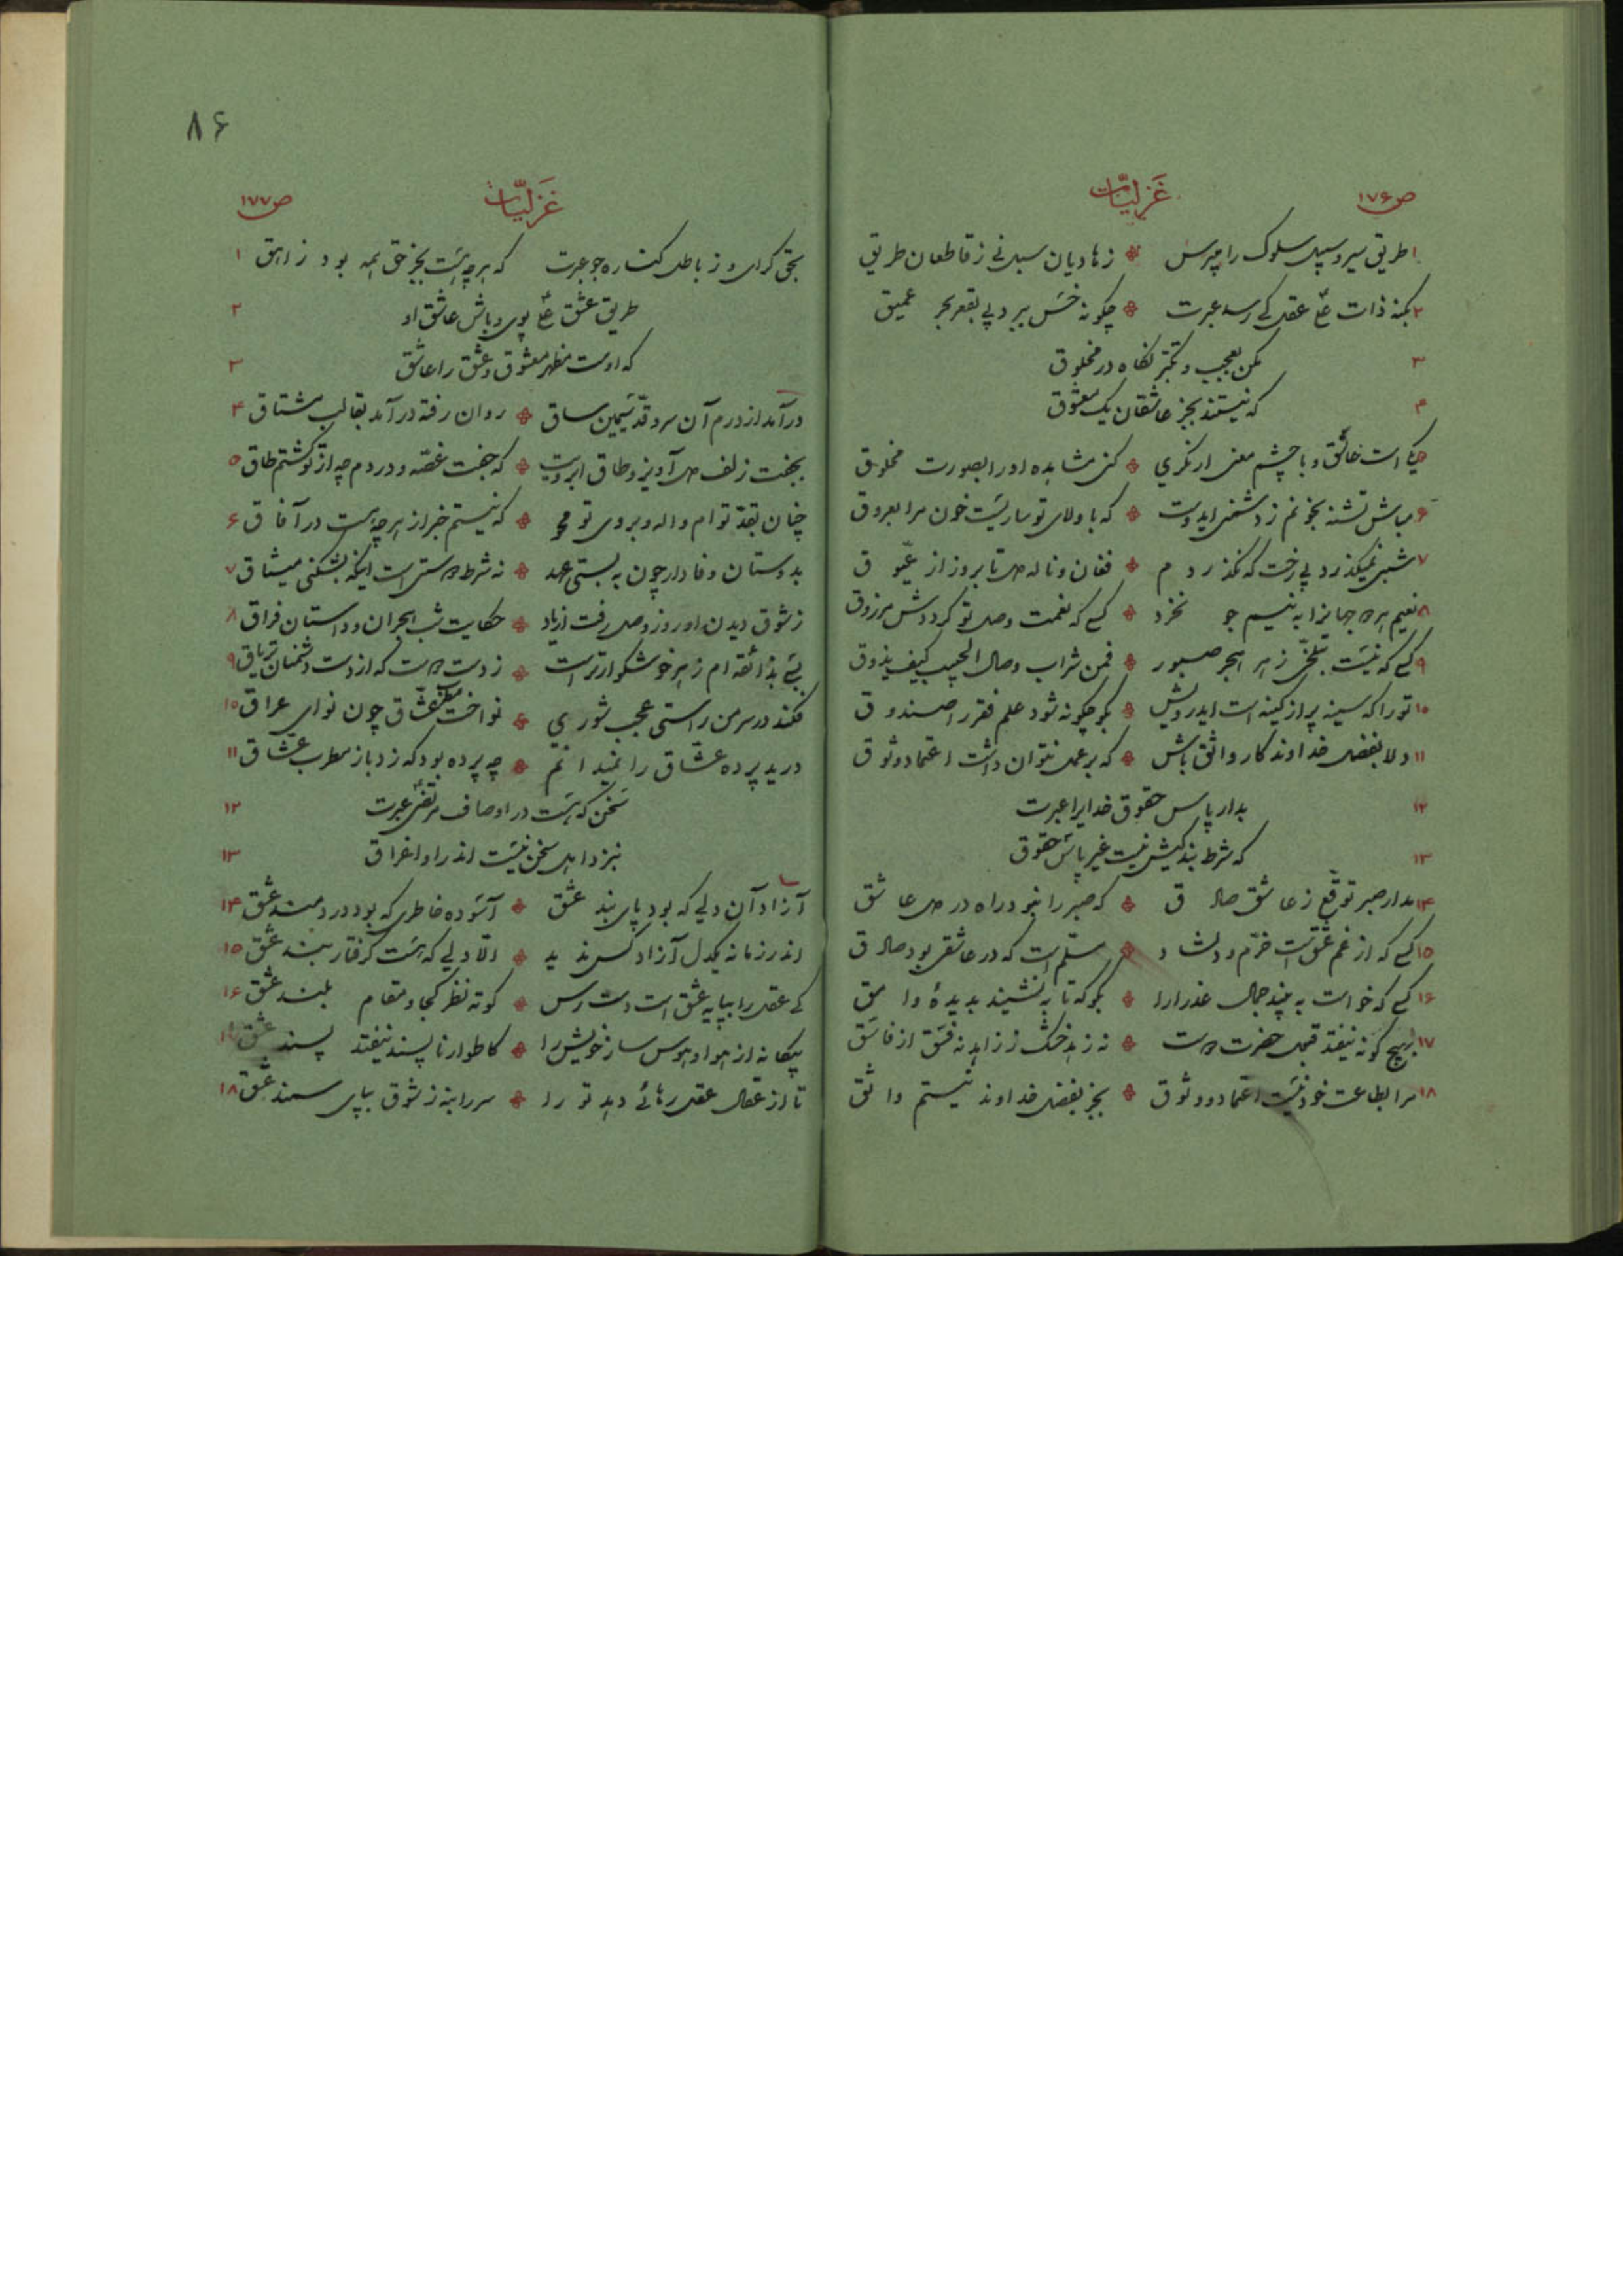 ص ۱۷۶
غزلیات
۱ طریق سیر و سبیل سلوک را میپرس ❊ ز هادیان سبل نی ز قاطعان طریق
۲ بکنه ذات علی عقل کی رسد عبرت ❊ چگونه خس ببرد پی بقعر بحر عمیق
۳ مکن بعجب و تکبّر نگاه در مخلوق
۴ که نیستند بجز عاشقان یک معشوق
یکی است خالق و با چشم معنی ار نگری ❊ کنی مشاهده او را بصورت مخلوق
۶ مباش تشنه بخونم ز دشمنی ایدوست ❊ که با ولای تو ساریست خون مرا بعروق
۷ شبی نمیگذرد بی رخت که نگذرد م ❊ فغان و ناله دل تا بروز از عیّو ق
۸ نعیم هر دو جهانرا به نیم جو نخرد ❊ کسی که نعمت وصل تو گرددش مرزوق
۹ کسی که نیست بتلخیّ زهر هجر صبور ❊ فمن شراب وصال الحبیب کیف یذوق
۱۰ تو را که سینه پر از کینه است ایدرویش ❊ بگو چگونه شود علم فقر را صندو ق
۱۱ دلا بفضل خداوندکار واثق باش ❊ که بر عمل نتوان داشت اعتماد و وثو ق
۱۲ بدار پاس حقوق خدایرا عبرت
۱۳ که شرط بندگیش نیست غیر پاس حقوق
۱۴ مدار صبر توقّع ز عاشق صاد ق ❊ که صبر را نبود راه در دل عا شق
۱۵ کسی که از غم عشق است خرّم و دلشا د ❊ مسلّم است که در عاشقی بود صاد ق
۱۶ کسی که خواست به بیند جمال عذرا را ❊ بگو که تا به نشیند بدیدهٔ وا مق
۱۷ بهیچ گونه نیفتد قبول حضرت دوست ❊ نه زهد خشک ز زاهد نه فسق از فاسق
۱۸ مرا بطاعت خود نیست اعتماد و وثوق ❊ بجز بفضل خداوند نیستم وا ثق
۸۶
ص ۱۷۷
غزلیات
بحق گرای و ز باطل کناره جو عبرت که هر چه هست بجز حق همه بو د ز اهق ۱
طریق عشق علی پوی و باش عاشق او ۲
که اوست مظهر معشوق و عشق را عاشق ۳
درآمد از درم آن سرو قدّ سیمین ساق ❊ روان رفته درآمد بقالب مشتاق ۴
بجفت زلف دل آویز و طاق ابرویت ❊ که جفت غصّه و دردم چه از تو گشتم طاق ۵
چنان بقدّ توام واله و بروی تو محو ❊ که نیستم خبر از هر چه هست در آفا ق ۶
بدوستان وفادار چون به بستی عهد ❊ نه شرط دوستی است اینکه بشکنی میثاق ۷
ز شوق دیدن او روز وصل رفت از یاد ❊ حکایت شب هجران و داستان فراق ۸
بسی بذائقه ام زهر خوشگوارتر است ❊ ز دست دوست که از دست دشمنان تریاق ۹
فکند در سر من راستی عجب شوری ❊ نواخت مطرب عشّاق چون نوای عراق ۱۰
درید پرده عشّاق را نمید ا نم ❊ چه پرده بود که زد باز مطرب عشّاق ۱۱
سخن که هست در اوصاف مرتضی عبرت ۱۲
بنزد اهل سخن نیست اندر او اغراق ۱۳
آزاد آن دلی که بود پای بند عشق ❊ آسوده خاطری که بود دردمند عشق ۱۴
اندر زمانه یکدل آزاد کس ند ید ❊ الّا دلی که هست گرفتار بند عشق ۱۵
کی عقل را بپایه عشق است دست رس ❊ کوته نظر کجا و مقام بلند عشق ۱۶
بیگانه از هوا و هوس ساز خویش را ❊ کاطوار ناپسند نیفتد پسند عشق ۱۷
تا از عقال عقل رهائی دهد تو را ❊ سر را بنه ز شوق بپای سمند عشق ۱۸